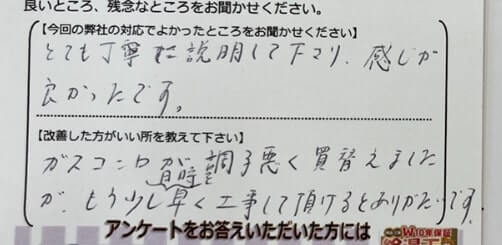 良いところ、残念なところをお聞かせください。
【今回の弊社の対応でよかったところをお聞かせください】
とても丁寧に説明して下さり、感じが
良かったです。
【改善した方がいい所を教えて下さい】
ガスコンロが調子悪く買替えました
が、もう少し日時を早く工事して頂けるとありがたいです。
アンケートをお答えいただいた方には
W10年保証